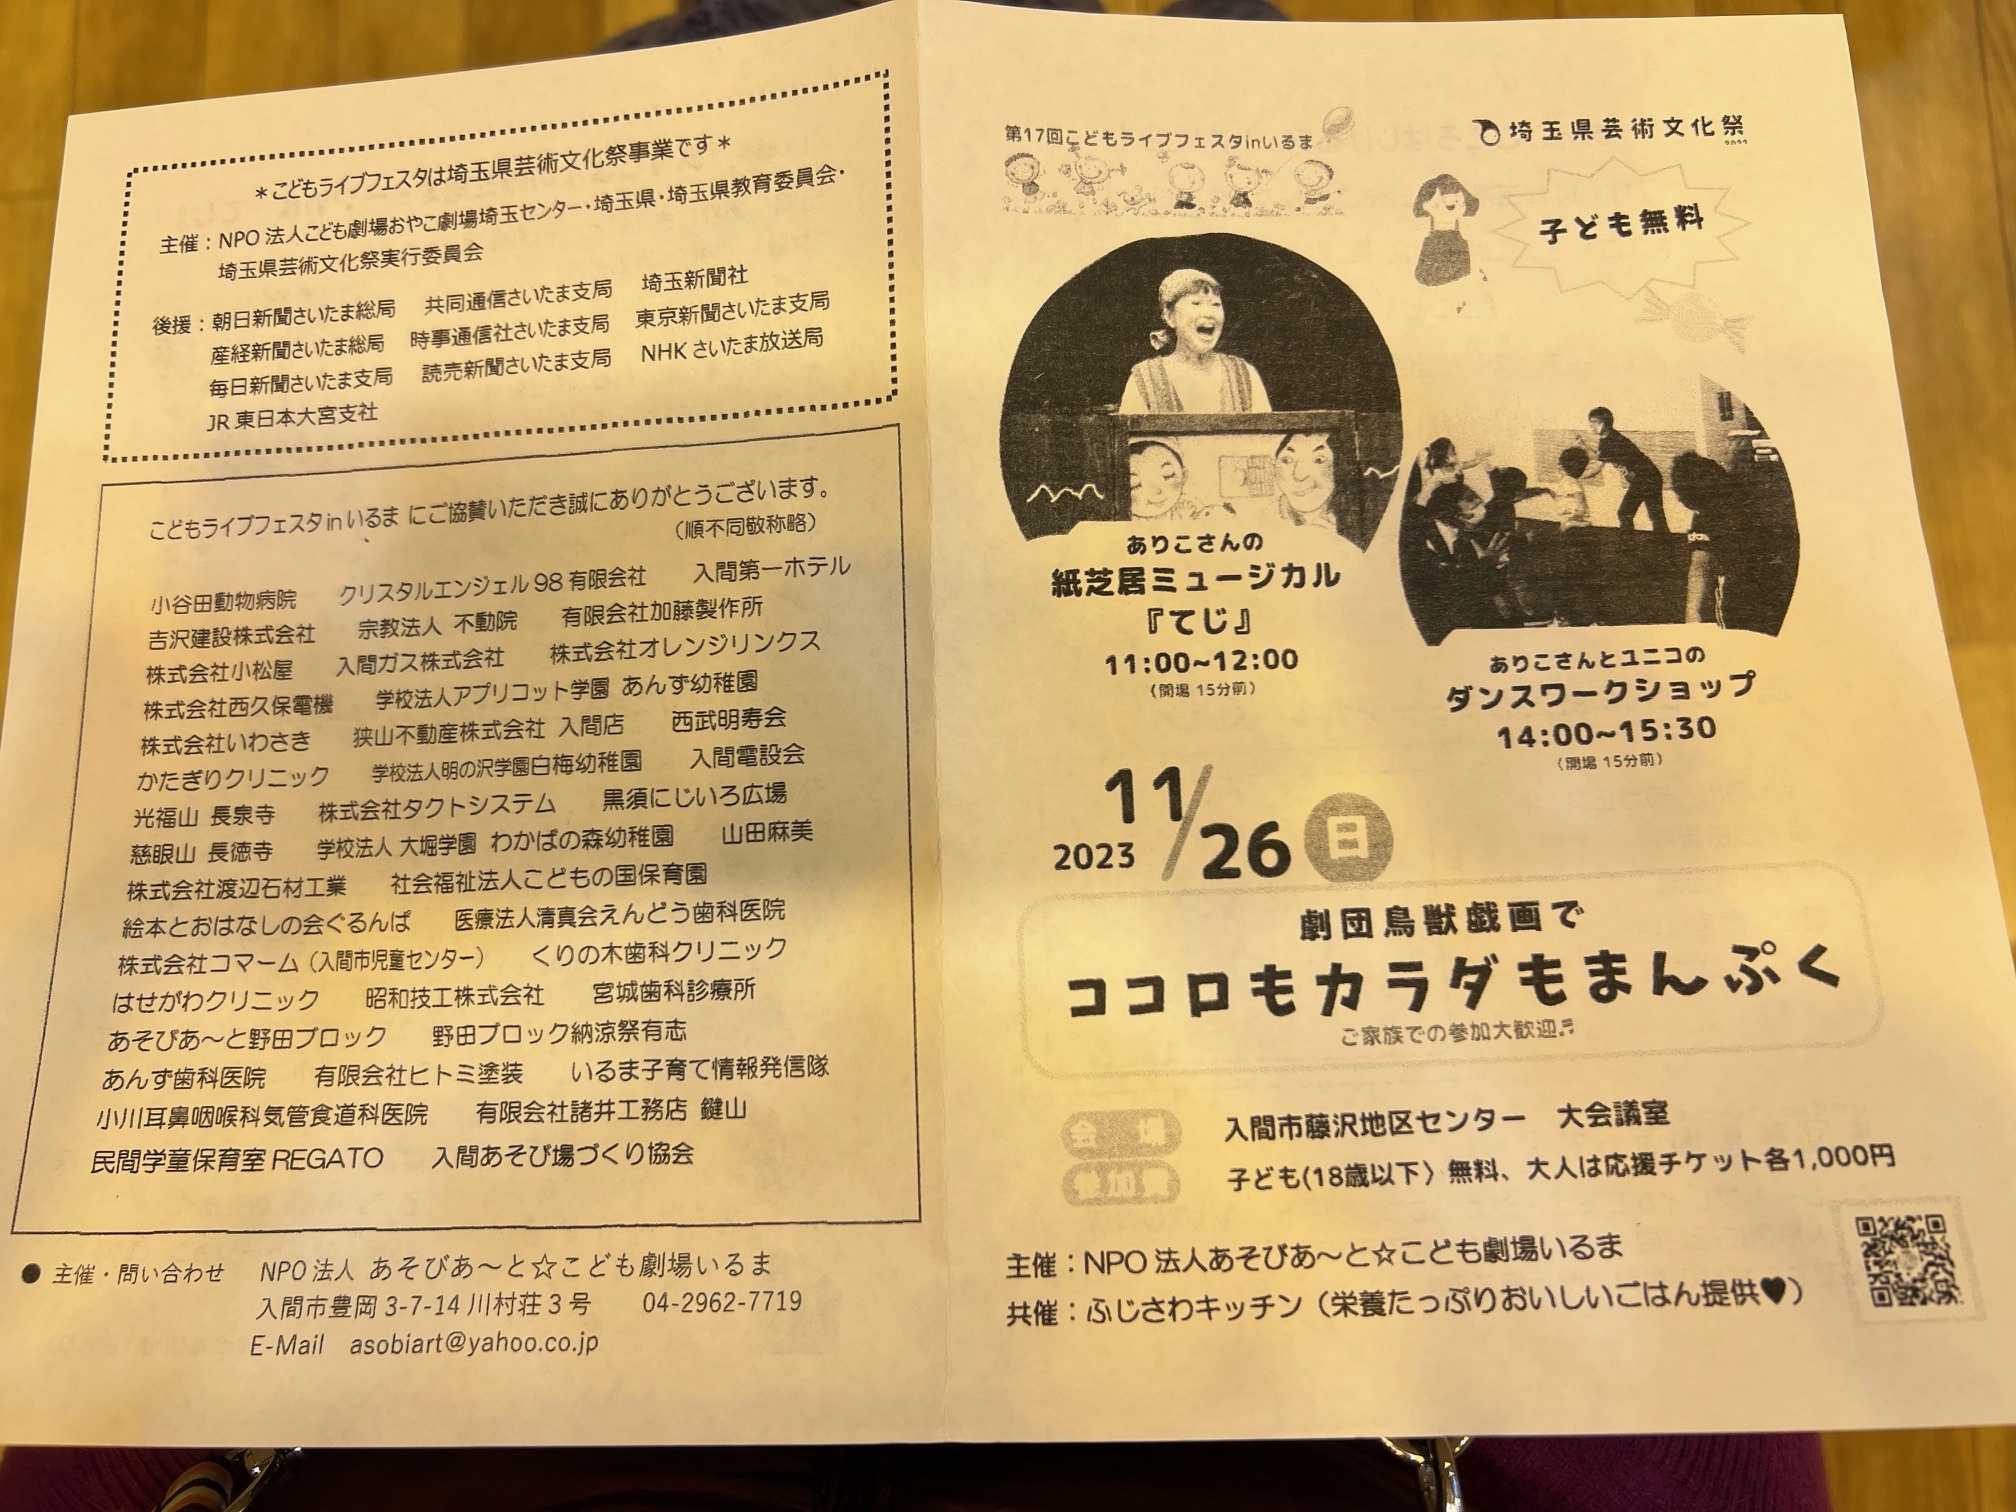 ＊こどもライブフェスタは埼玉県芸術文化祭事業です＊
主催：NPO 法人こども劇場おやこ劇場埼玉センター・埼玉県・埼玉県教育委員会・
埼玉県芸術文化祭実行委員会
後援：朝日新聞さいたま総局　共同通信さいたま支局　埼玉新聞社
産経新聞さいたま総局　時事通信社さいたま支局　東京新聞さいたま支局
毎日新聞さいたま支局　読売新聞さいたま支局　NHK さいたま放送局
JR 東日本大宮支社
こどもライブフェスタ in いるま にご協賛いただき誠にありがとうございます。
（順不同敬称略）
小谷田動物病院　クリスタルエンジェル 98 有限会社　入間第一ホテル
吉沢建設株式会社　宗教法人 不動院　有限会社加藤製作所
株式会社小松屋　入間ガス株式会社　株式会社オレンジリンクス
株式会社西久保電機　学校法人アプリコット学園 あんず幼稚園
株式会社いわさき　狭山不動産株式会社 入間店　西武明寿会
かたぎりクリニック　学校法人明の沢学園白梅幼稚園　入間電設会
光福山 長泉寺　株式会社タクトシステム　黒須にじいろ広場
慈眼山 長徳寺　学校法人 大堀学園 わかばの森幼稚園　山田麻美
株式会社渡辺石材工業　社会福祉法人こどもの国保育園
絵本とおはなしの会ぐるんぱ　医療法人清真会えんどう歯科医院
株式会社コマーム（入間市児童センター）　くりの木歯科クリニック
はせがわクリニック　昭和技工株式会社　宮城歯科診療所
あそびあ～と野田ブロック　野田ブロック納涼祭有志
あんず歯科医院　有限会社ヒトミ塗装　いるま子育て情報発信隊
小川耳鼻咽喉科気管食道科医院　有限会社諸井工務店 鍵山
民間学童保育室 REGATO　入間あそび場づくり協会
● 主催・問い合わせ　NPO 法人 あそびあ～と☆こども劇場いるま
入間市豊岡 3-7-14 川村荘 3 号　04-2962-7719
E-Mail　asobiart@yahoo.co.jp
第17回こどもライブフェスタinいるま
埼玉県芸術文化祭
子ども無料
ありこさんの
紙芝居ミュージカル
『てじ』
11:00~12:00
（開場 15分前）
ありこさんとユニコの
ダンスワークショップ
14:00~15:30
（開場 15分前）
2023 11/26 日
劇団鳥獣戯画で
ココロもカラダもまんぷく
ご家族での参加大歓迎♬
会 場　入間市藤沢地区センター　大会議室
参加費　子ども(18歳以下）無料、大人は応援チケット各1,000円
主催：NPO 法人あそびあ～と☆こども劇場いるま
共催：ふじさわキッチン（栄養たっぷりおいしいごはん提供♥）